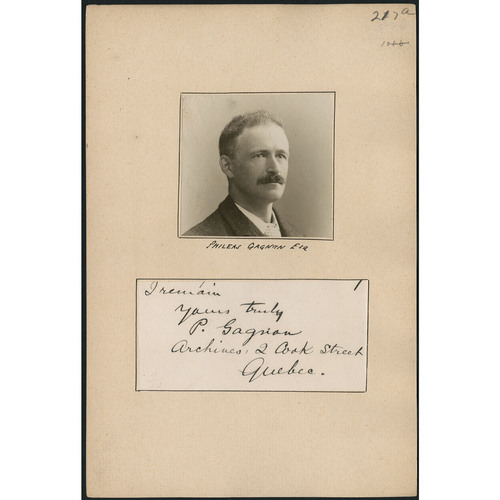 217a
1066
PHILEAS GAGNON ESQ
I remain
Yours truly
P. Gagnon
Archives, 2 Cook Street
Quebec.